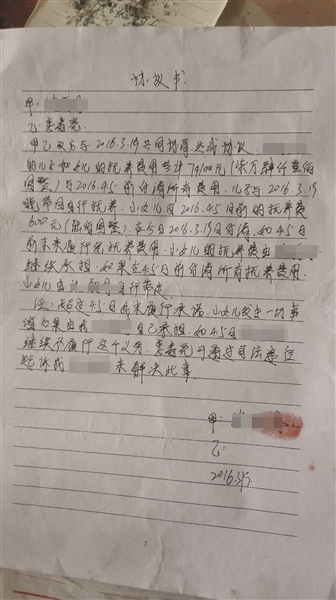 协议书
甲:
乙:姜春亮
甲乙双方与2016.3.19共同协商达成协议
的儿子和女儿的抚养费用共计74100元(柒万肆仟壹佰
圆整)与2016.4.5前付清所有费用.儿子与2016.3.19
晚带回自行抚养.小女儿因2016.4.5日前的抚养费
600元(陆佰圆整).在今日2016.3.19日付清.如4.5日
前未来履行完抚养费用.小女儿的抚养费由
继续承担.如果在4.5日前付清所有抚养费用.
小女儿由 自行带走
注:超过4.5日前未履行承诺.小女儿发生一切事
情后果由我 自己承担.如4.5日
继续不履行这个义务.姜春亮可通过司法途径
起诉我 来解决此事.
甲:
乙:
2016.3.19.
2